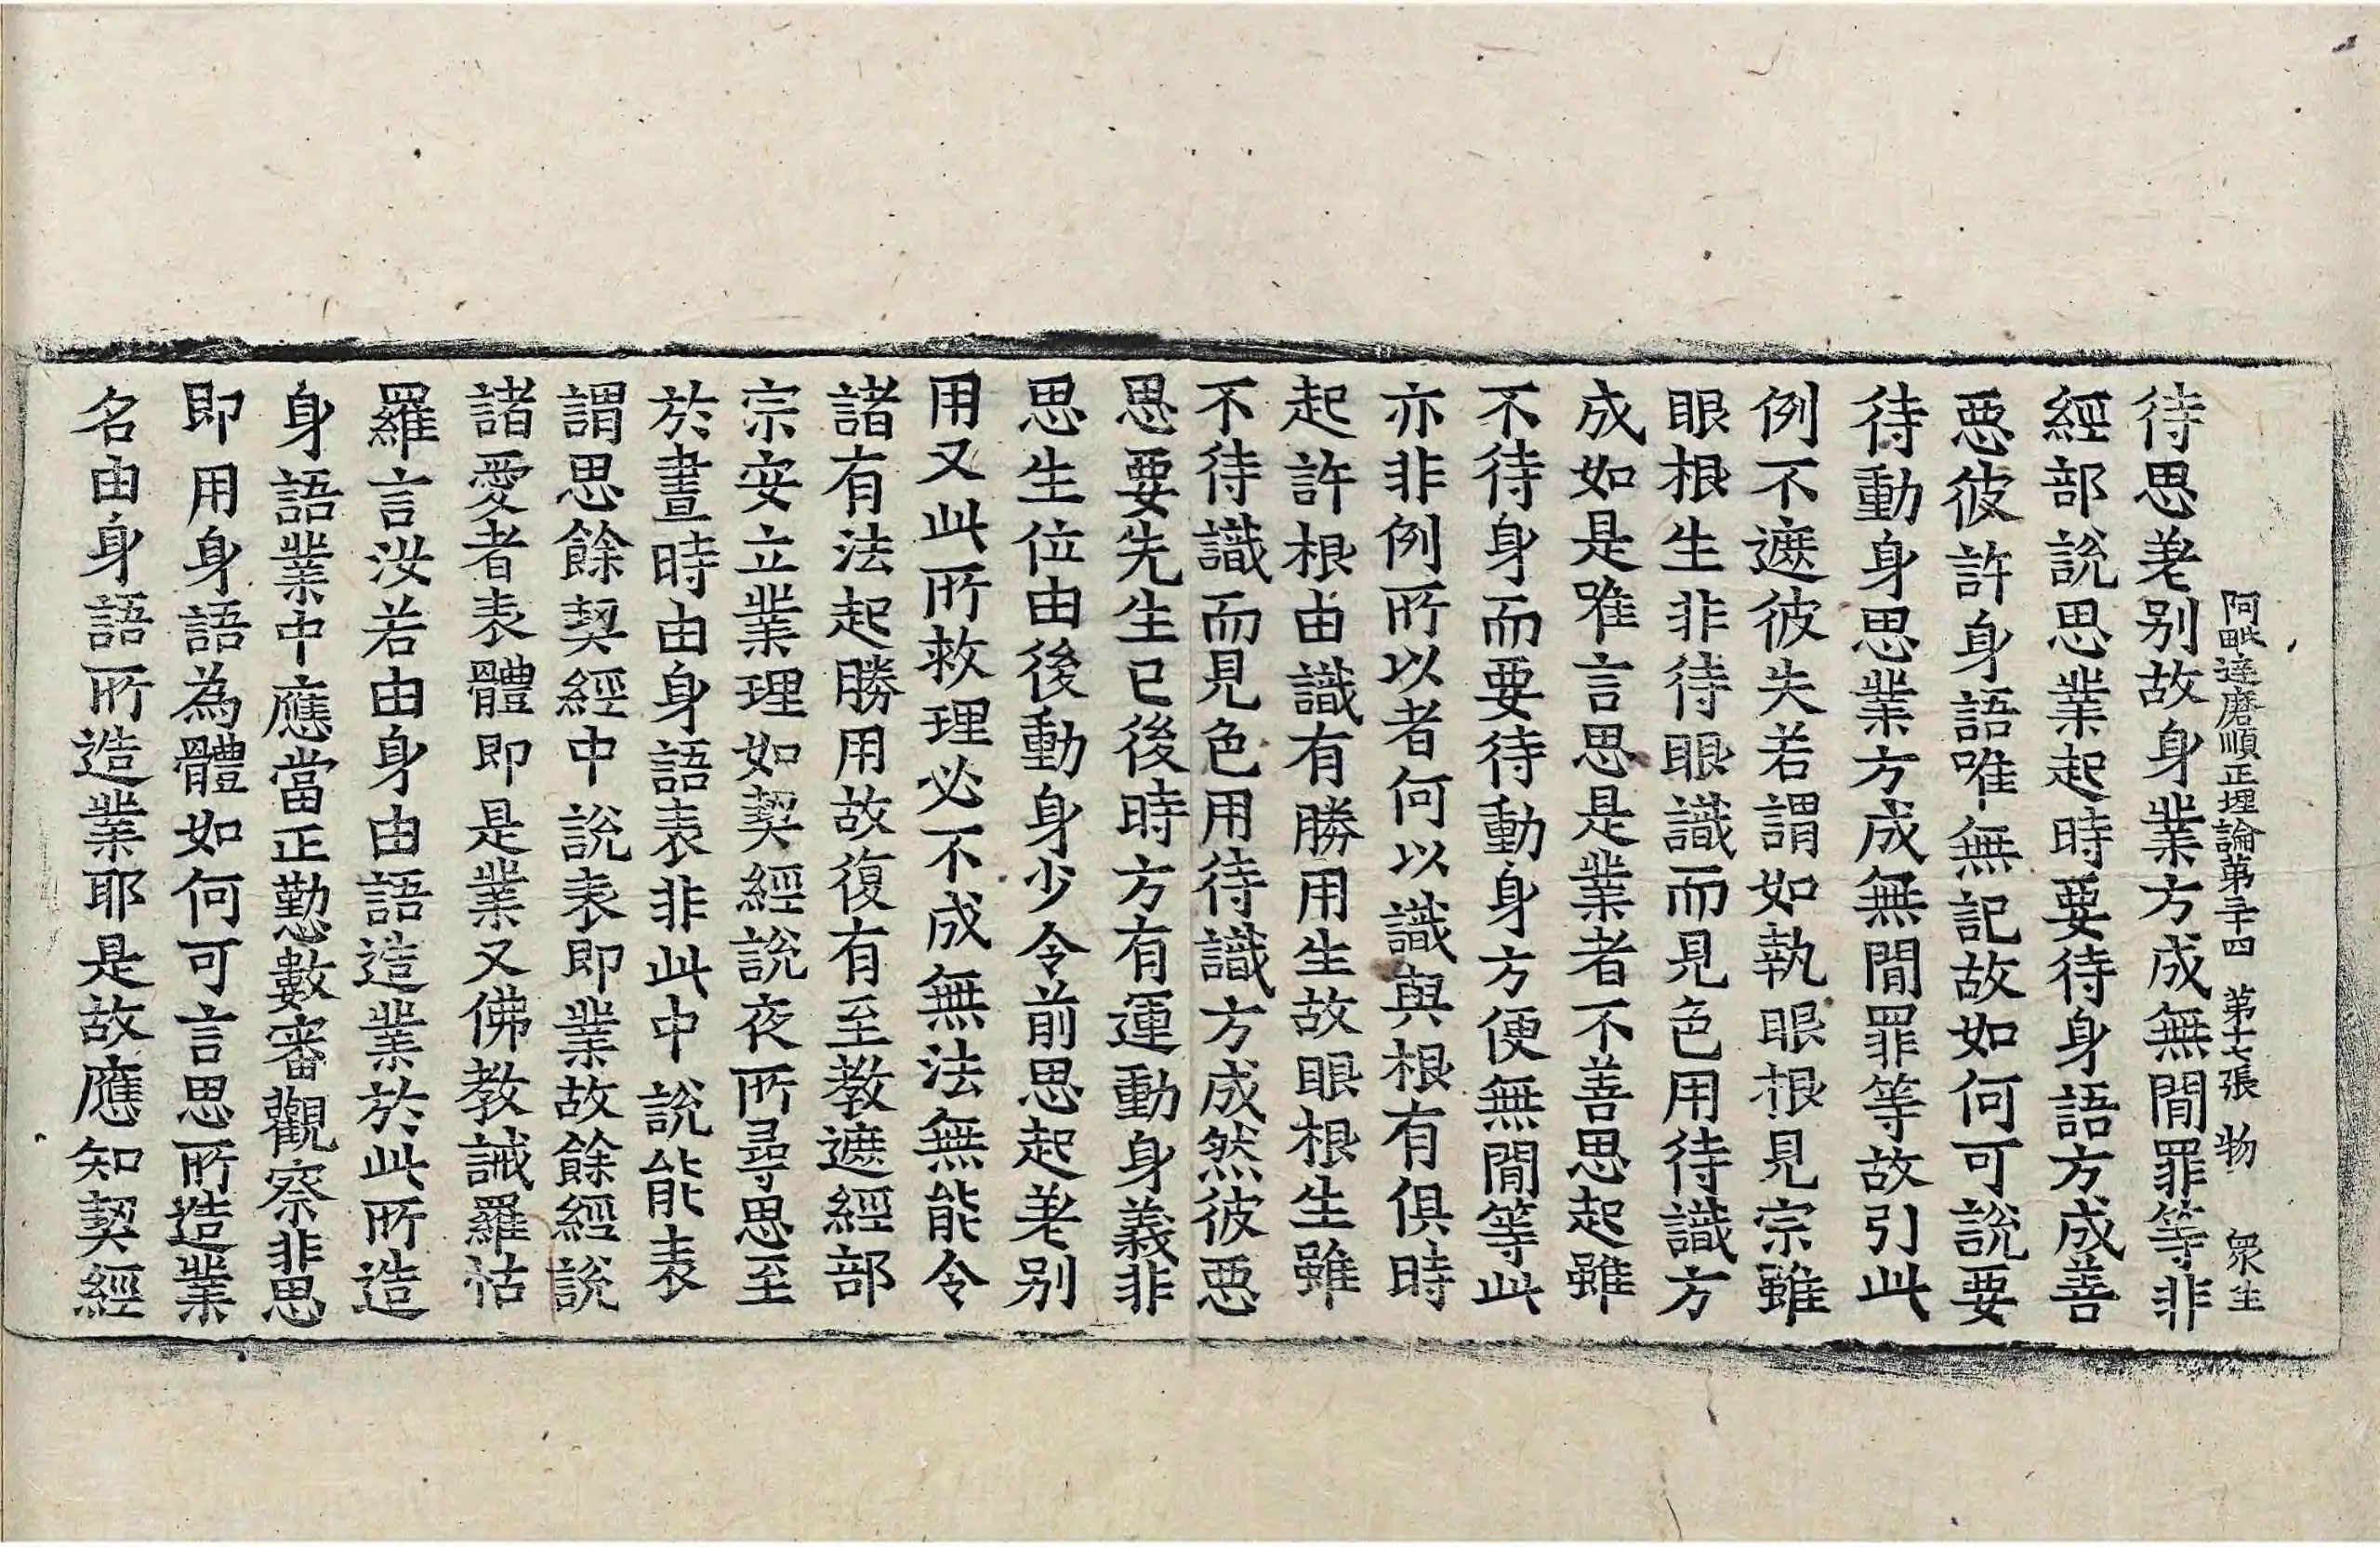 阿毗達磨順正理論第三十四 第十七張 物 衆生
待思差別故身業方成無間罪等非
經部說思業起時要待身語方成善
惡彼許身語唯無記故如何可說要
待動身思業方成無間罪等故引此
例不遮彼失若謂如執眼根見宗雖
眼根生非待眼識而見色用待識方
成如是唯言思是業者不善思起雖
不待身而要待動身方便無間等此
亦非例所以者何以識與根有俱時
起許根由識有勝用生故眼根生雖
不待識而見色用待識方成然彼惡
思要先生已後時方有運動身義非
思生位由後動身少令前思起差別
用又此所救理必不成無法無能令
諸有法起勝用故復有至教遮經部
宗安立業理如契經說夜所尋思至
於晝時由身語表非此中說能表
謂思餘契經中說表即業故餘經說
諸愛者表體即是業又佛教誡羅怙
羅言汝若由身由語造業於此所造
身語業中應當正勤數審觀察非思
即用身語為體如何可言思所造業
名由身語所造業耶是故應知契經